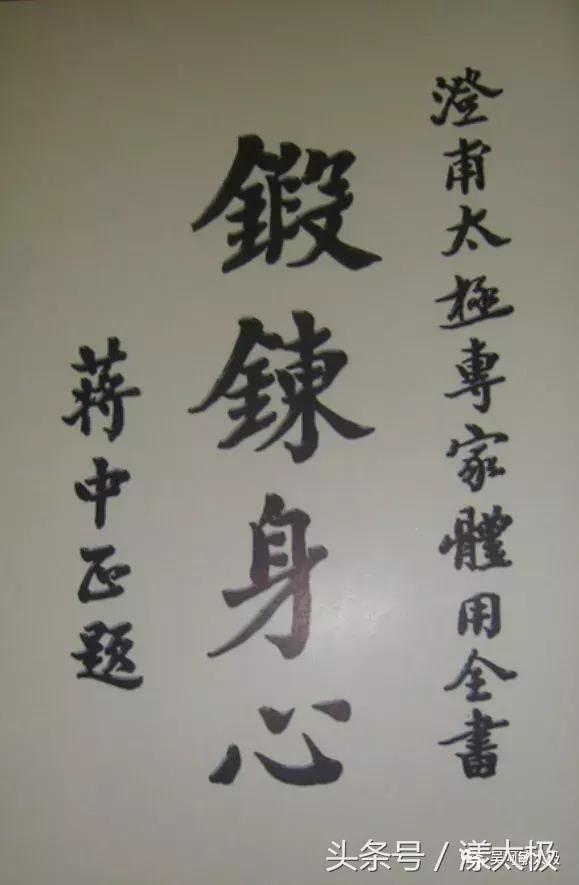 澄甫太極專家體用全書
鍛鍊身心
蔣中正題
头条号／漾太极